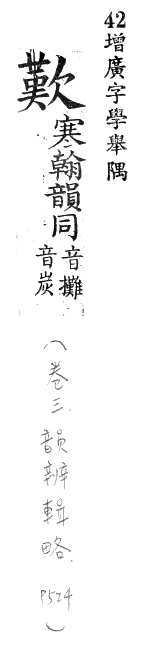 42增廣字學舉隅
歎寒翰韻同音攤
音炭
(卷三.韻辨輯略.P524)